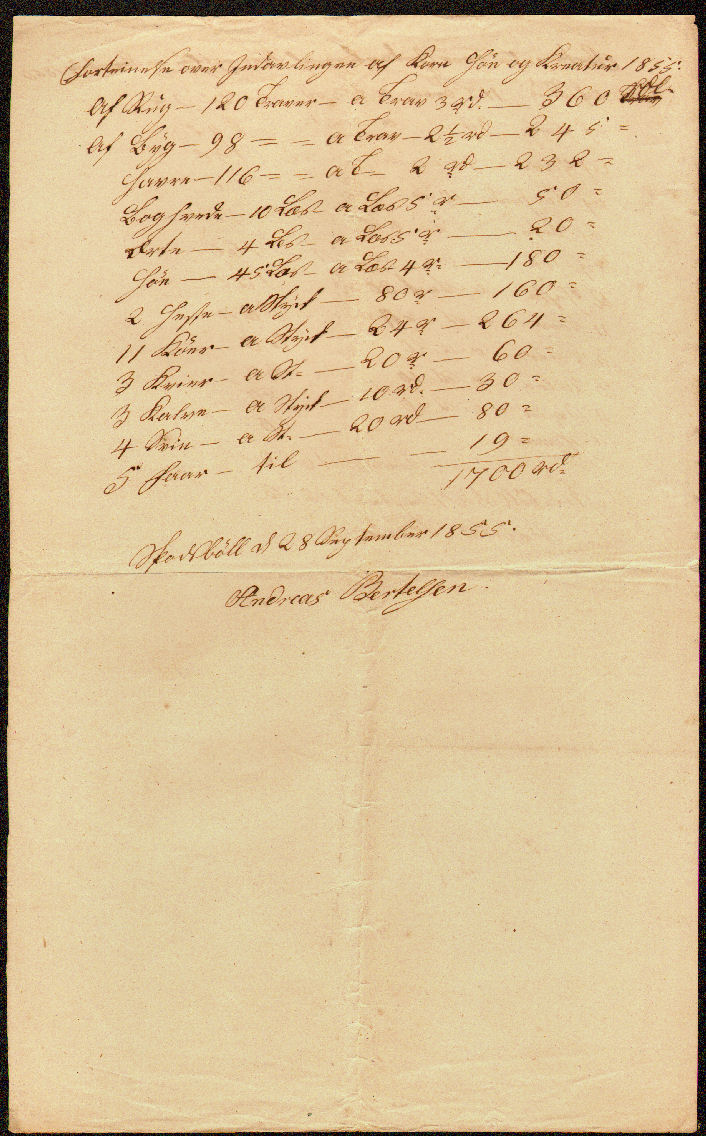 Forteinelse over Indavlingen af Korn Höe og Kreatur 1855.
Af Rug — 120 Traver — a Trav 3 rd. — 360 rdl.
Af Byg — 98 = = a Trav — 2½ rd — 245 =
Havre — 116 = = a T — 2 rd — 232 =
Boghvede — 10 Læs a Læs 5 r — 50 =
Erte — 4 Les a Læs 5 r — 20 =
Höe — 45 Læs a Læs 4 r. — 180 =
2 Heste — a Styck — 80 r — 160 =
11 Köer — a Styck — 24 r — 264 =
3 Kvier — a St= — 20 r — 60 =
3 Kalve — a Styck — 10 rd. — 30 =
4 Svin — a St. — 20 rd — 80 =
5 Faar — til — — 19 =
1700 rd=
Skodsböll d 28 September 1855.
Andreas Bertelsen.